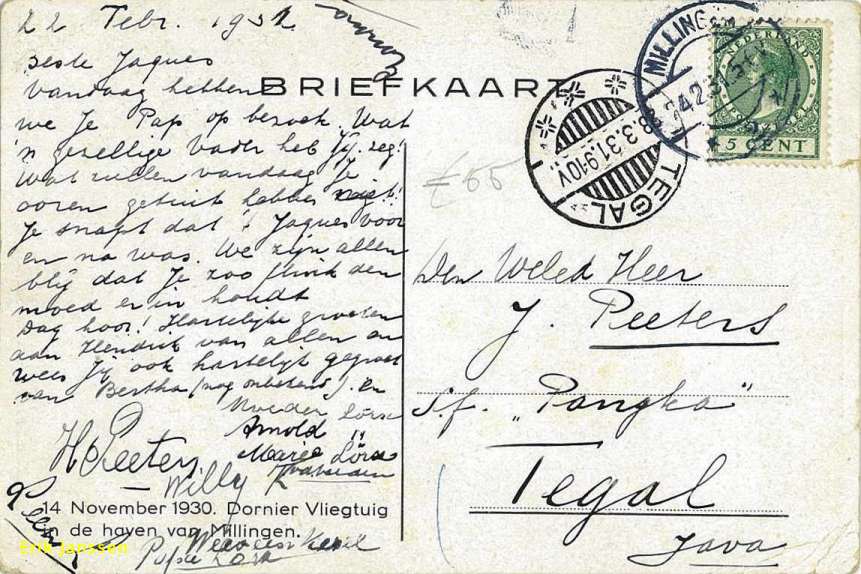 22 Febr. 1931
Beste Jaques
Vandaag hebben
we Je Pap op bezoek. Wat
'n gezellige Vader heb Jij. zeg!
Wat zullen vandaag Je
ooren getuit hebben
Je snapt dat! Jaques voor
en na was. We zijn allen
blij dat Je zoo flink den
moed er in houdt
Dag hoor! Hartelijke groeten
aan Hendrik van allen en
wees Jij ook hartelijk gegroet
van Bertha (nog onbekend). En
Moeder
Arnold
Maria
H Peeters
Willy
BRIEFKAART
MILLINGEN
24.2.31
NEDERLAND
5 CENT
8.3.31.9-10V.
TEGAL
£65
Den Weled Heer
J. Peeters
s.f. „Pangka"
Tegal
Java
14 November 1930. Dornier Vliegtuig
in de haven van Millingen.
Erik Janssen